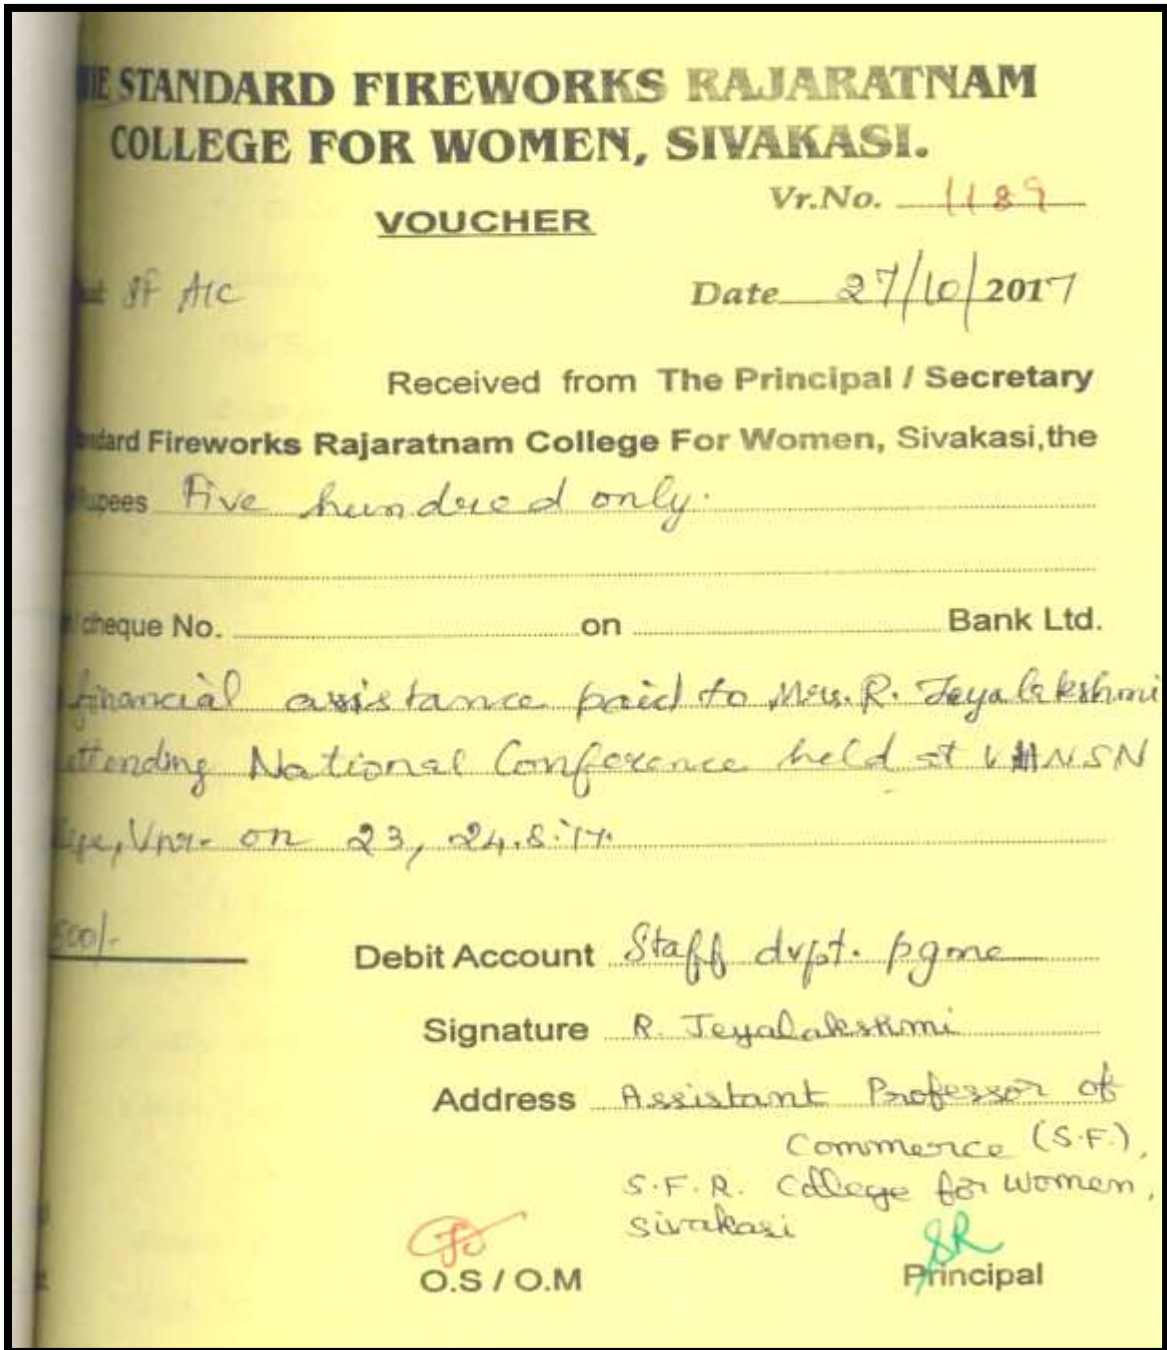 THE STANDARD FIREWORKS RAJARATNAM
COLLEGE FOR WOMEN, SIVAKASI.
Vr.No. 1189
VOUCHER
SF A/C
Date 27/10/2017
Received from The Principal / Secretary
Standard Fireworks Rajaratnam College For Women, Sivakasi,the
Rupees Five hundred only.
cheque No. on Bank Ltd.
financial assistance paid to Mrs. R. Jeyalakshmi
attending National Conference held at VHNSN
Vnr. on 23, 24.8.'17.
500/-
Debit Account Staff dvpt. pgme
Signature R. Jeyalakshmi
Address Assistant Professor of
Commerce (S.F.),
S.F.R. College for Women,
Sivakasi
O.S / O.M
SR
Principal